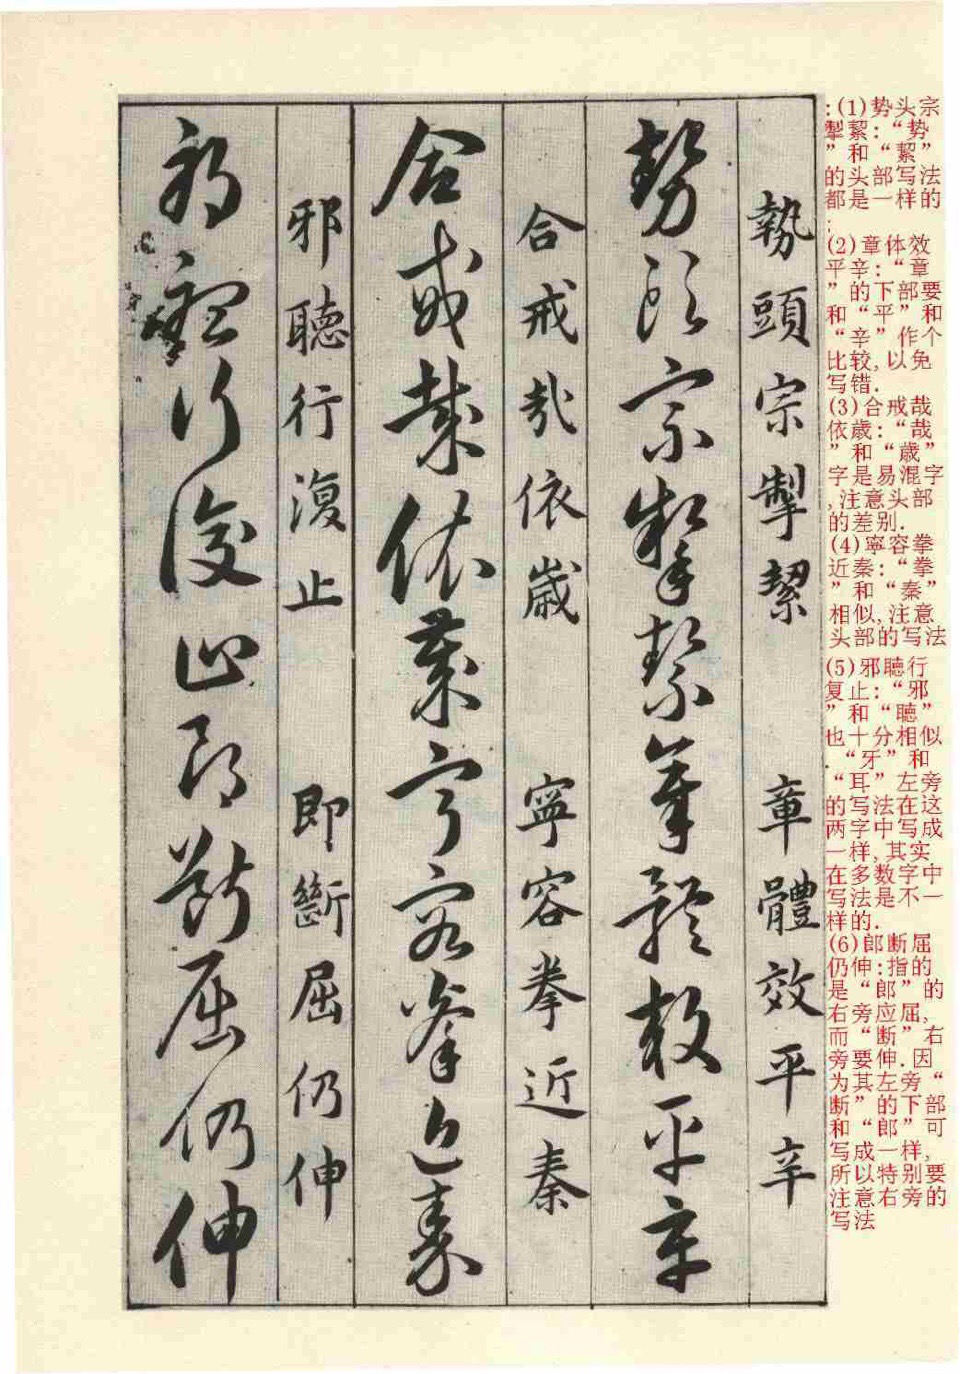 勢頭宗掣絜章體效平辛
埶頭宗掣絜 章體效平辛
合戒哉依歳寧容拳近秦
合戒哉依歳 寧容拳近秦
邪聽行復止即斷屈仍伸
邪聽行復止 即斷屈仍伸
:(1)势头宗
掣絜:“势
”和“絜”
的头部写法
都是一样的
;
(2)章体效
平辛:“章
”的下部要
和“平”和
“辛”作个
比较,以免
写错.
(3)合戒哉
依歳:“哉
”和“歳”
字是易混字
,注意头部
的差别.
(4)寧容拳
近秦:“拳
”和“秦”
相似,注意
头部的写法
(5)邪聴行
复止:“邪
”和“聴”
也十分相似
.“牙”和
“耳”左旁
的写法在这
两字中写成
一样,其实
在多数字中
写法是不一
样的.
(6)郎断屈
仍伸:指的
是“郎”的
右旁应屈,
而“断”右
旁要伸.因
为其左旁“
断”的下部
和“郎”可
写成一样,
所以特别要
注意右旁的
写法